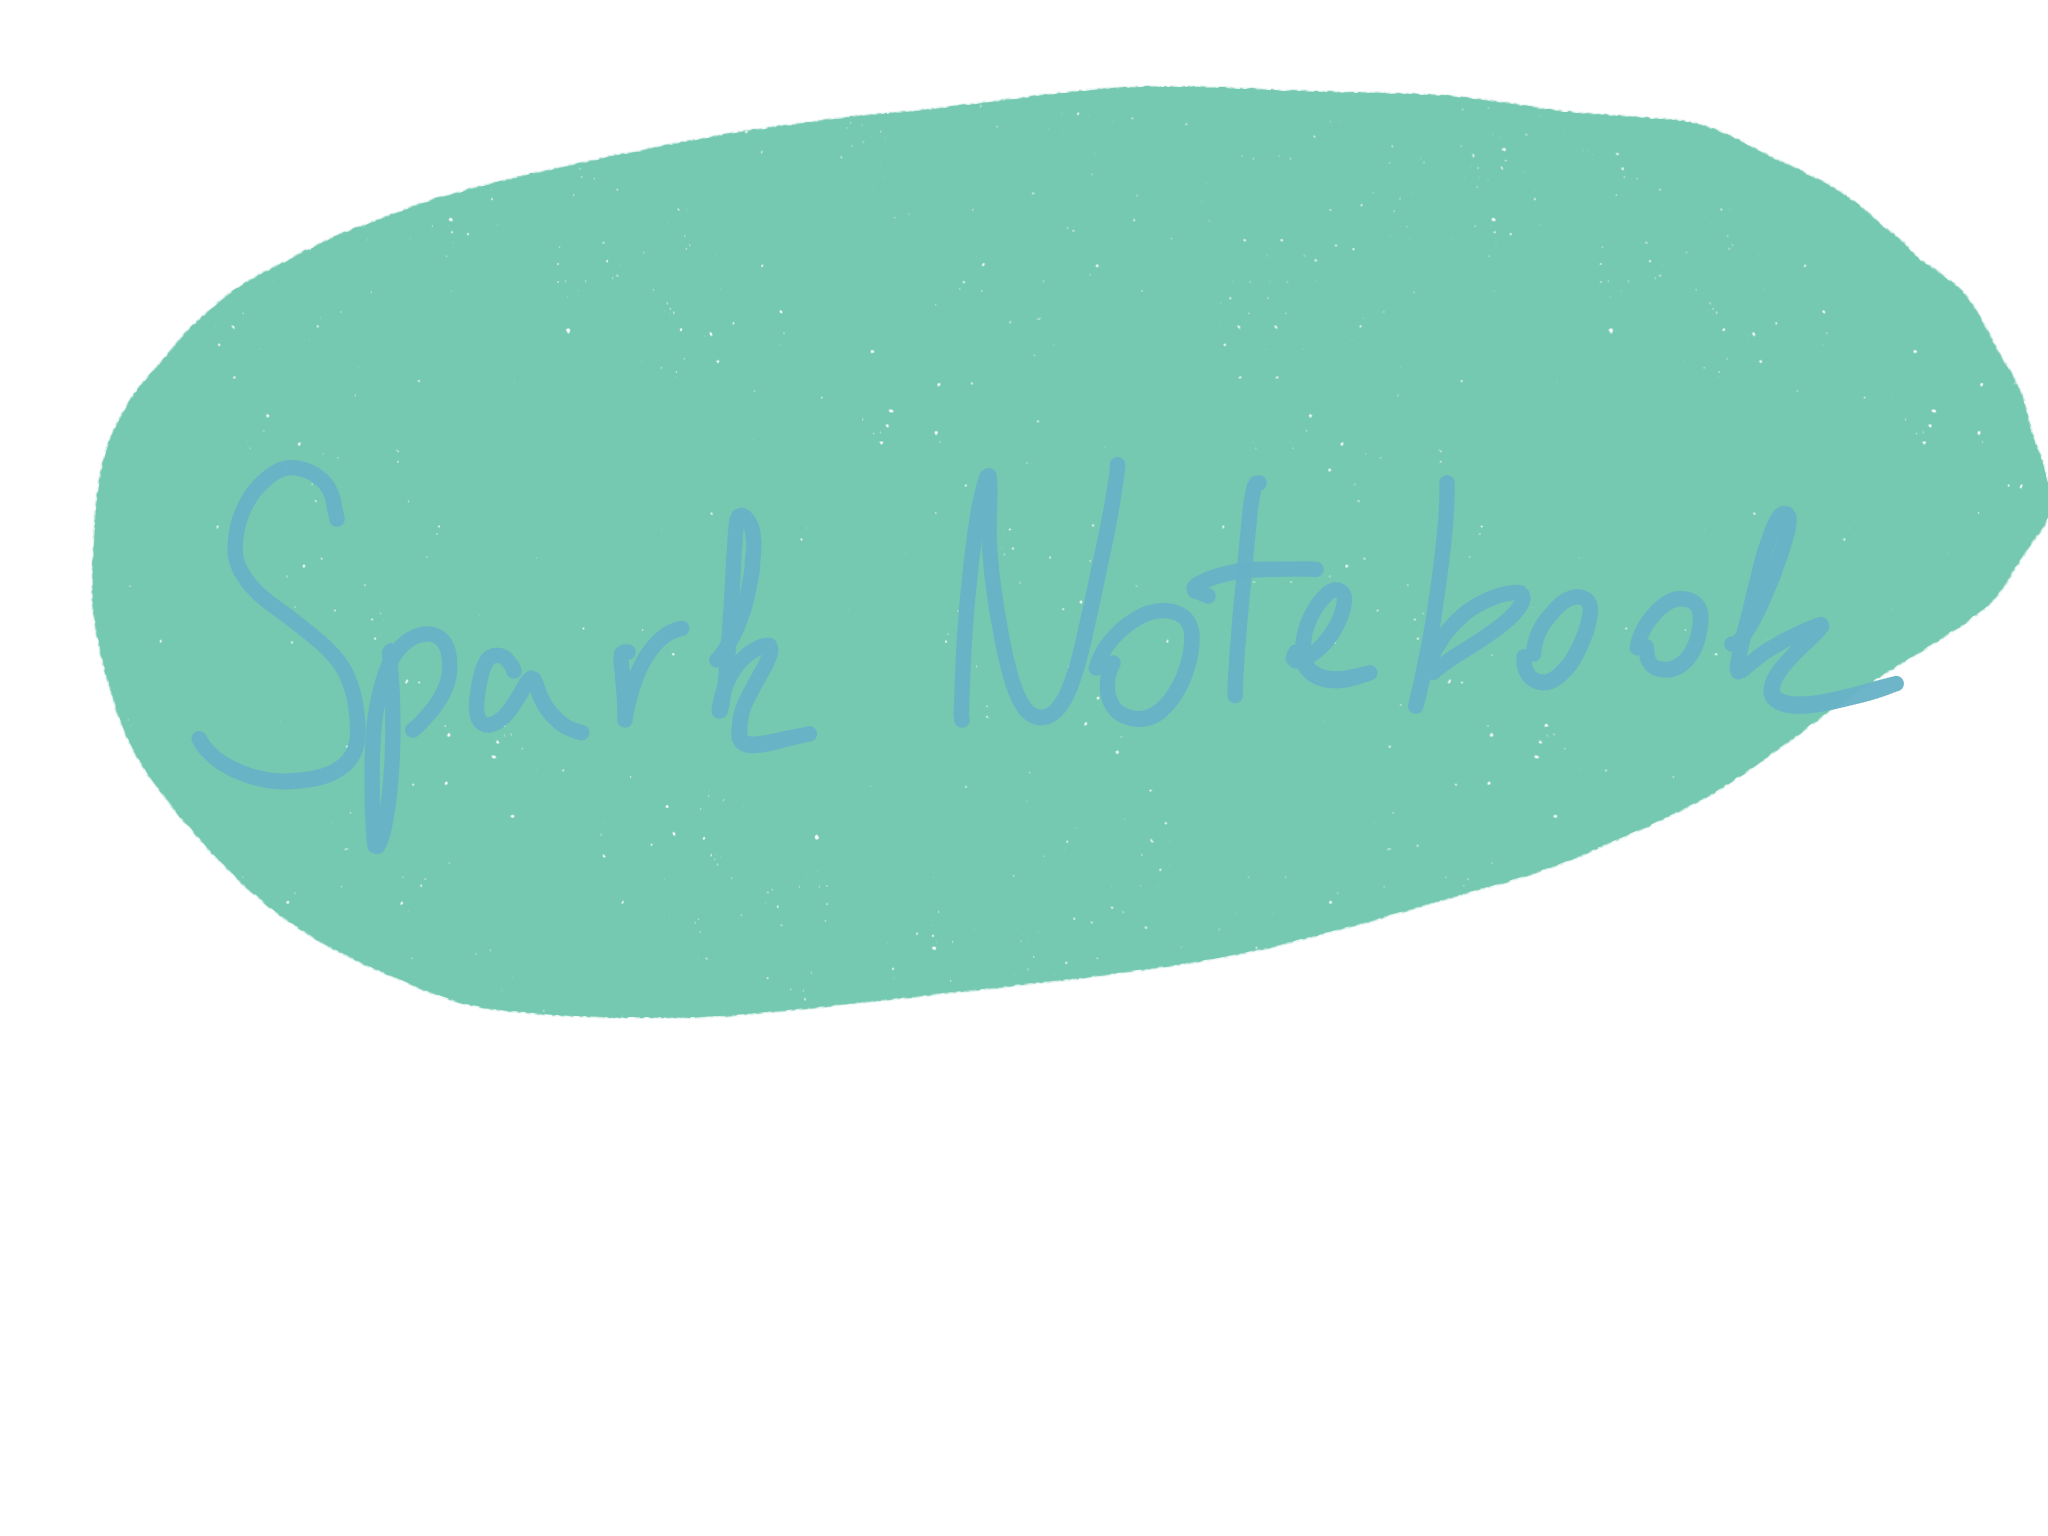 Spark Notebook